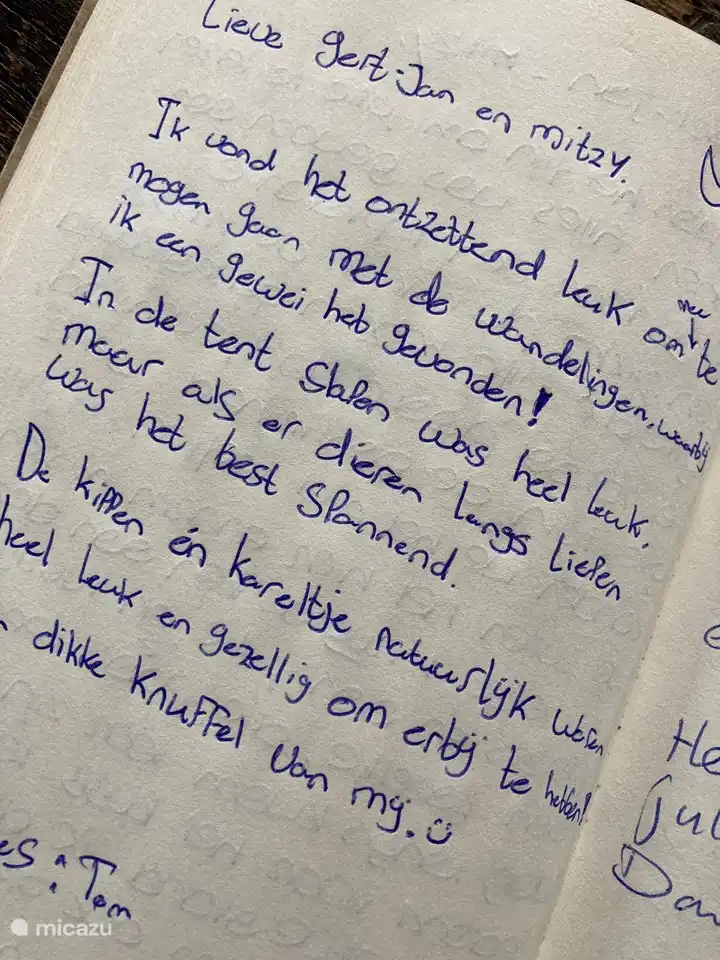 Lieve Gert-Jan en mitzy.
Ik vond het ontzettend leuk om mee te
mogen gaan met de wandelingen, waarbij
ik een gewei heb gevonden!
In de tent slapen was heel leuk,
maar als er dieren langs liepen
was het best spannend.
De kippen én kareltje natuurlijk waren
heel leuk en gezellig om erbij te hebben!
dikke knuffel van mij. ☺
: Tom
He
jul
Da
micazu